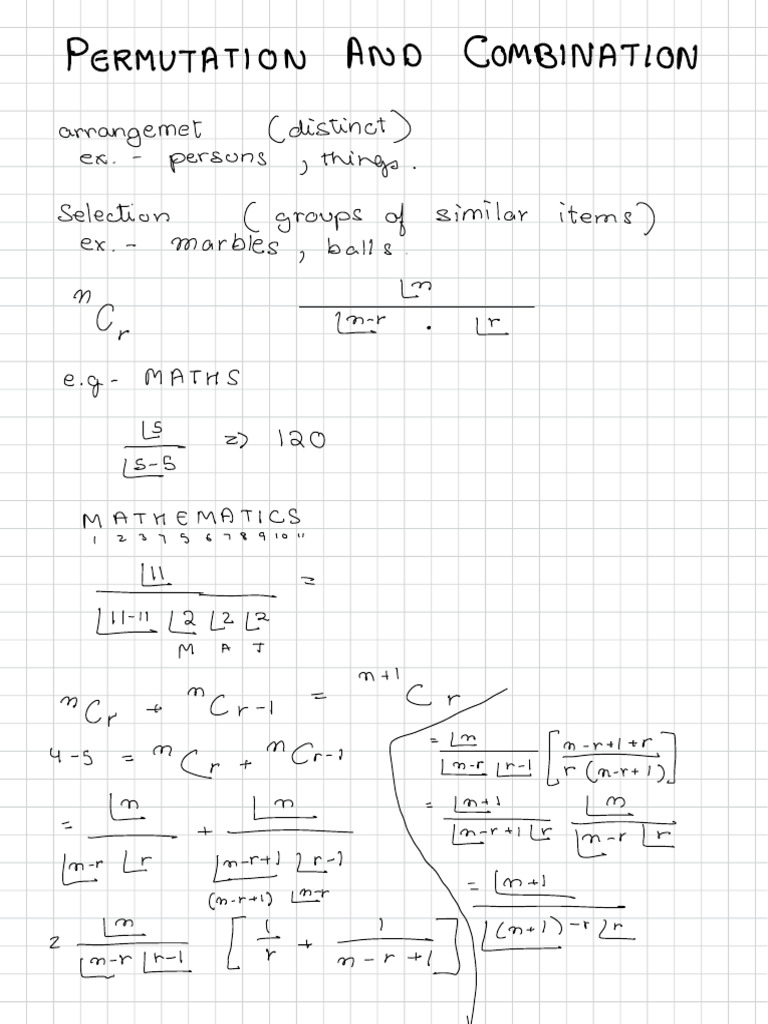 PERMUTATION AND COMBINATION
arrangemet (distinct)
ex. - persons, things.
Selection (groups of similar items)
ex. - marbles, balls.
ⁿCᵣ ⌊n / ⌊n-r . ⌊r
e.g - MATHS
⌊5 / ⌊5-5 => 120
MATHEMATICS
1 2 3 4 5 6 7 8 9 10 11
⌊11 / ⌊11-11 ⌊2 ⌊2 ⌊2 =
M A T
ⁿCr + ⁿCr-1 = ⁿ⁺¹Cr
4-5 = ⁿCr + ⁿCr-1
= ⌊n / ⌊n-r ⌊r + ⌊n / ⌊n-r+1 ⌊r-1
(n-r+1) ⌊n-r
= ⌊n / ⌊n-r ⌊r-1 [1/r + 1/n-r+1]
= ⌊n / ⌊n-r ⌊r-1 [n-r+1+r / r(n-r+1)]
= ⌊n+1 / ⌊n-r+1 ⌊r ⌊n / ⌊n-r ⌊r
= ⌊n+1 / ⌊(n+1)-r ⌊r